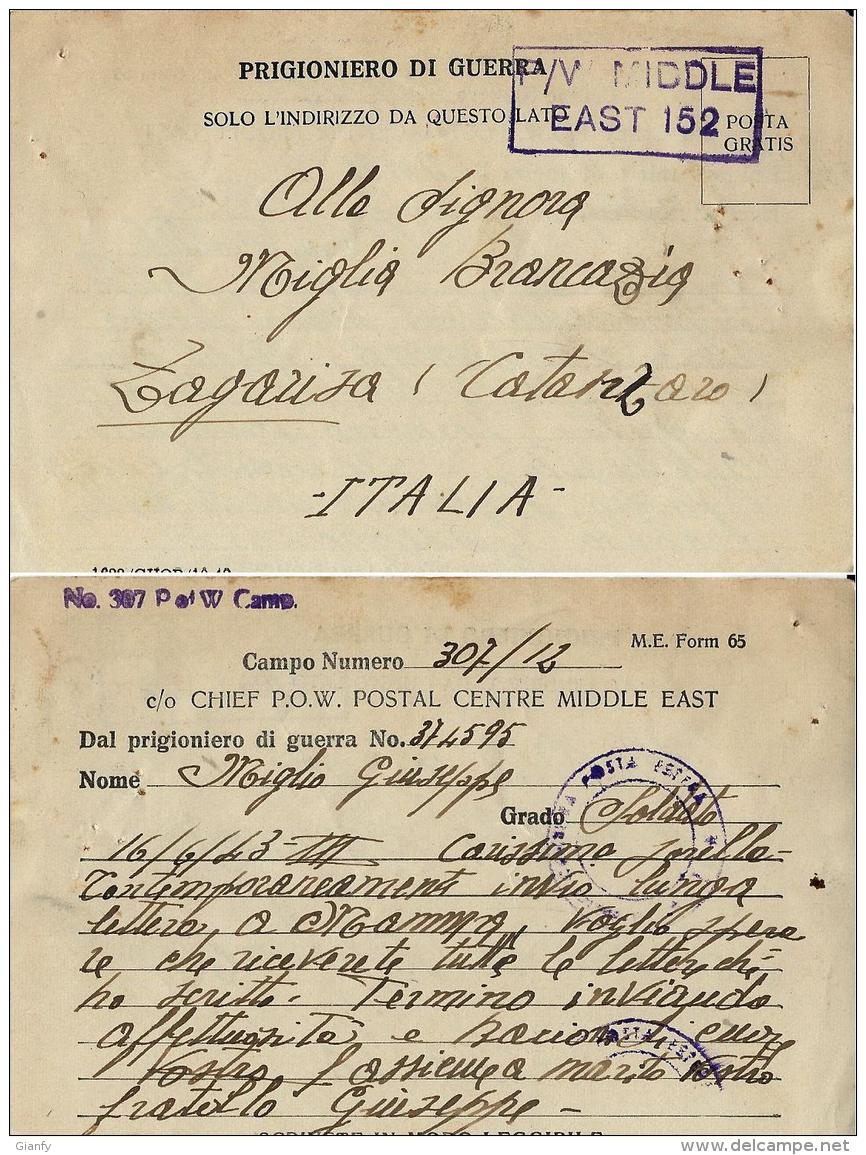 PRIGIONIERO DI GUERRA
P/W MIDDLE
EAST 152
SOLO L'INDIRIZZO DA QUESTO LATO
POSTA
GRATIS
Alla Signora
Miglia Brancazia
Zagarisa (Catanzaro)
-ITALIA-
No. 307 P of W Camp.
M.E. Form 65
Campo Numero 307/12
c/o CHIEF P.O.W. POSTAL CENTRE MIDDLE EAST
Dal prigioniero di guerra No. 374595
Nome Miglio Giuseppe
Grado Soldato
POSTA ESTERA
16/6/43-III Carissima sorella-
Contemporaneamente invio lunga
lettera, a Mamma, voglio spera
re che riceverete tutte le lettere che
ho scritto. Termino inviando
affettuosità e cuore
Vostro marito Vostro
fratello Giuseppe-
SCRIVETE IN MODO LEGGIBILE
Gianfy
www.delcampe.net